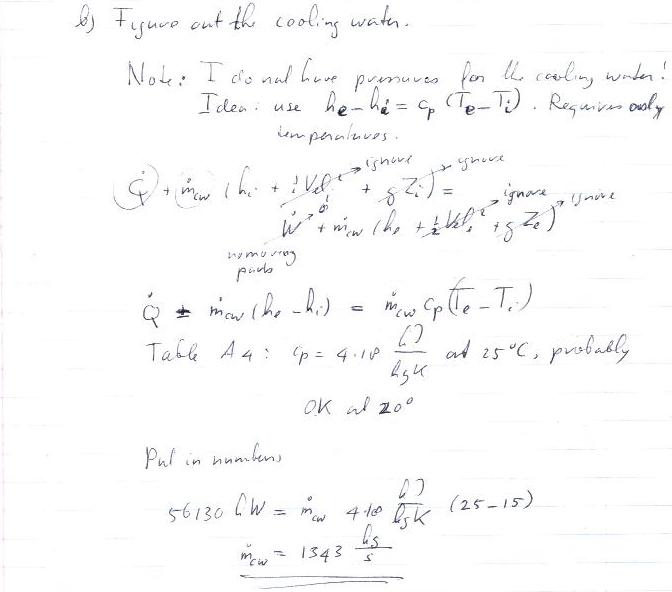 b) Figure out the cooling water.
Note: I do not have pressures for the cooling water!
Idea: use he-hi = cp (Te-Ti). Requires only
temperatures.
ignore ignore
Q̇ + ṁcw (hi + ½Vel² + gZi) =
ignore ignore
0
Ẇ + ṁcw (he + ½Vel² + gZe)
no moving
parts
Q̇ = ṁcw (he - hi) = ṁcw cp (Te - Ti)
Table A4: cp = 4.18 kJ/kgK at 25°C, probably
OK at 20°
Put in numbers
56130 kW = ṁcw 4.18 kJ/kgK (25-15)
ṁcw = 1343 kg/s